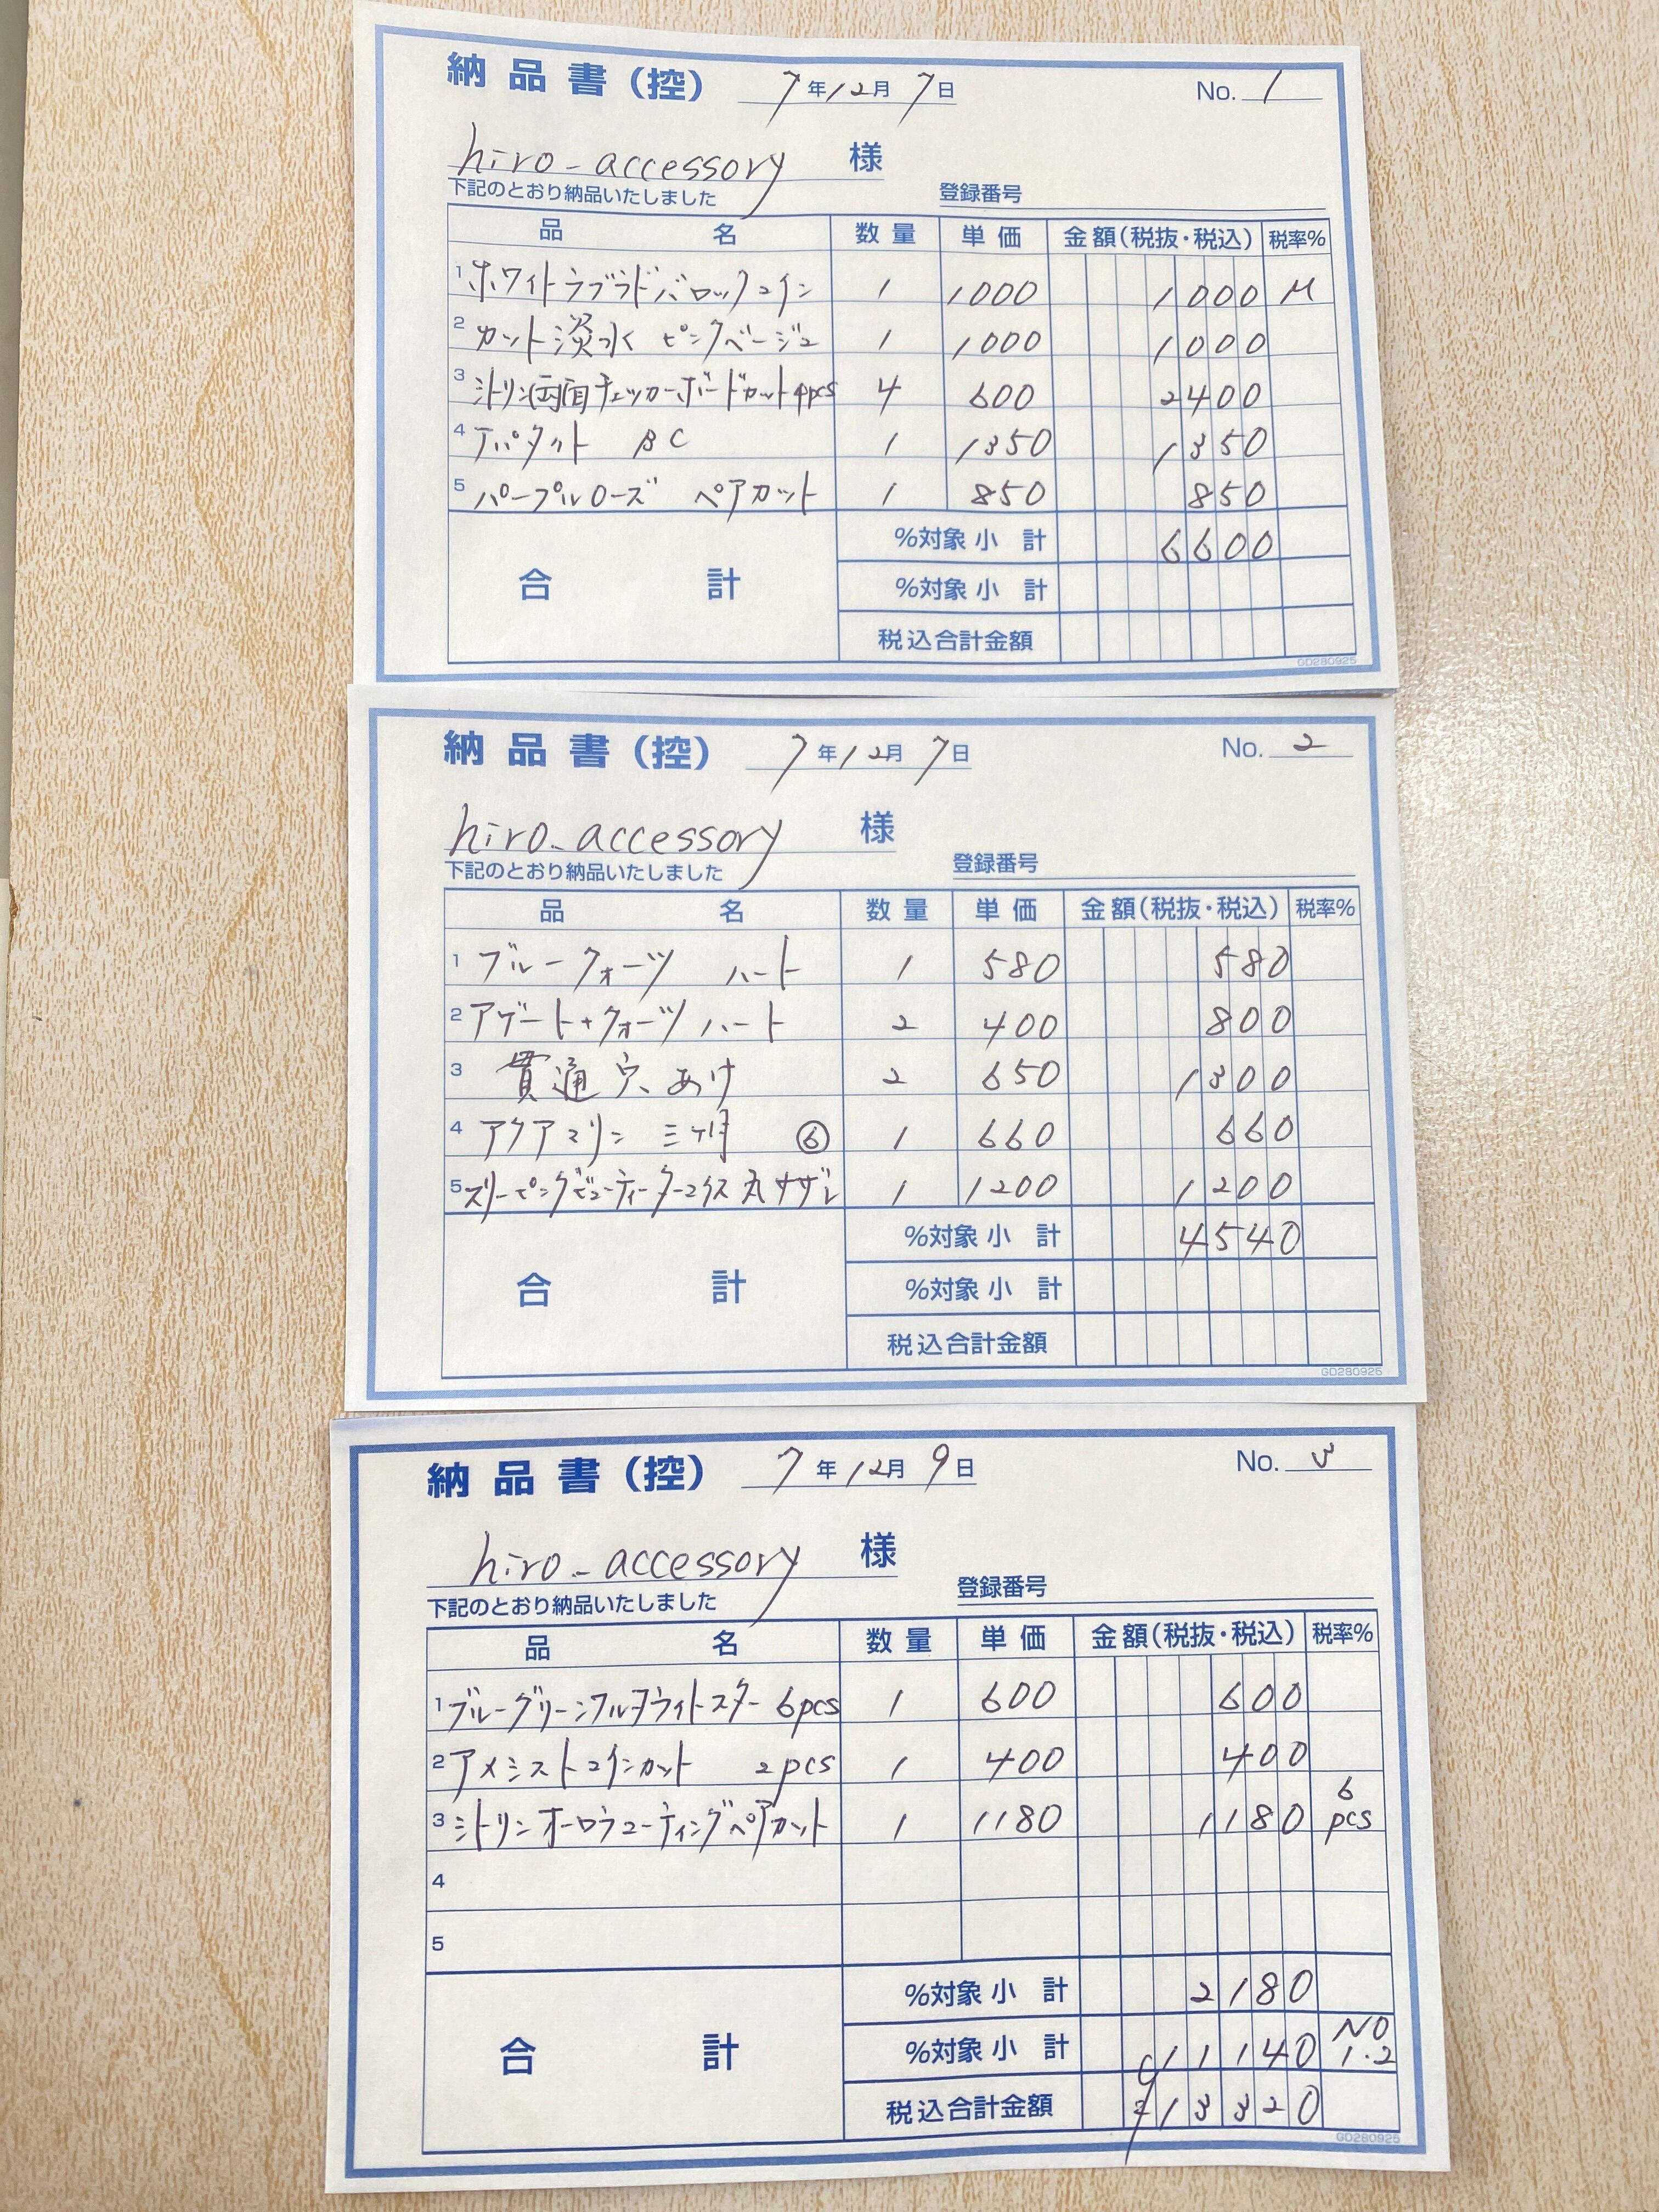 納品書(控) 7年12月7日 No. 1
hiro-accessory 様
下記のとおり納品いたしました 登録番号
品名 数量 単価 金額(税抜・税込) 税率%
1 ホワイトラブラドバロックコイン 1 1000 1000 M
2 カット淡水 ピンクベージュ 1 1000 1000
3 シトリン両面チェッカーボードカット4pcs 4 600 2400
4 アパタイト BC 1 1350 1350
5 パープルローズ ペアカット 1 850 850
%対象小計 6600
合計 %対象小計
税込合計金額
GD280925
納品書(控) 7年12月7日 No. 2
hiro-accessory 様
下記のとおり納品いたしました 登録番号
品名 数量 単価 金額(税抜・税込) 税率%
1 ブルークォーツ ハート 1 580 580
2 アゲート+クォーツ ハート 2 400 800
3 貫通穴あけ 2 650 1300
4 アクアマリン 三ケ月 ⑥ 1 660 660
5 スリーピングビューティーターコイス 丸サザレ 1 1200 1200
%対象小計 4540
合計 %対象小計
税込合計金額
GD280925
納品書(控) 7年12月9日 No. 3
hiro-accessory 様
下記のとおり納品いたしました 登録番号
品名 数量 単価 金額(税抜・税込) 税率%
1 ブルーグリーンフルオライトスター 6pcs 1 600 600
2 アメシストコインカット 2pcs 1 400 400
3 シトリンオーロラコーティングペアカット 1 1180 1180 6pcs
4
5
%対象小計 2180
合計 %対象小計 11140 NO 1.2
税込合計金額 13320
GD280925